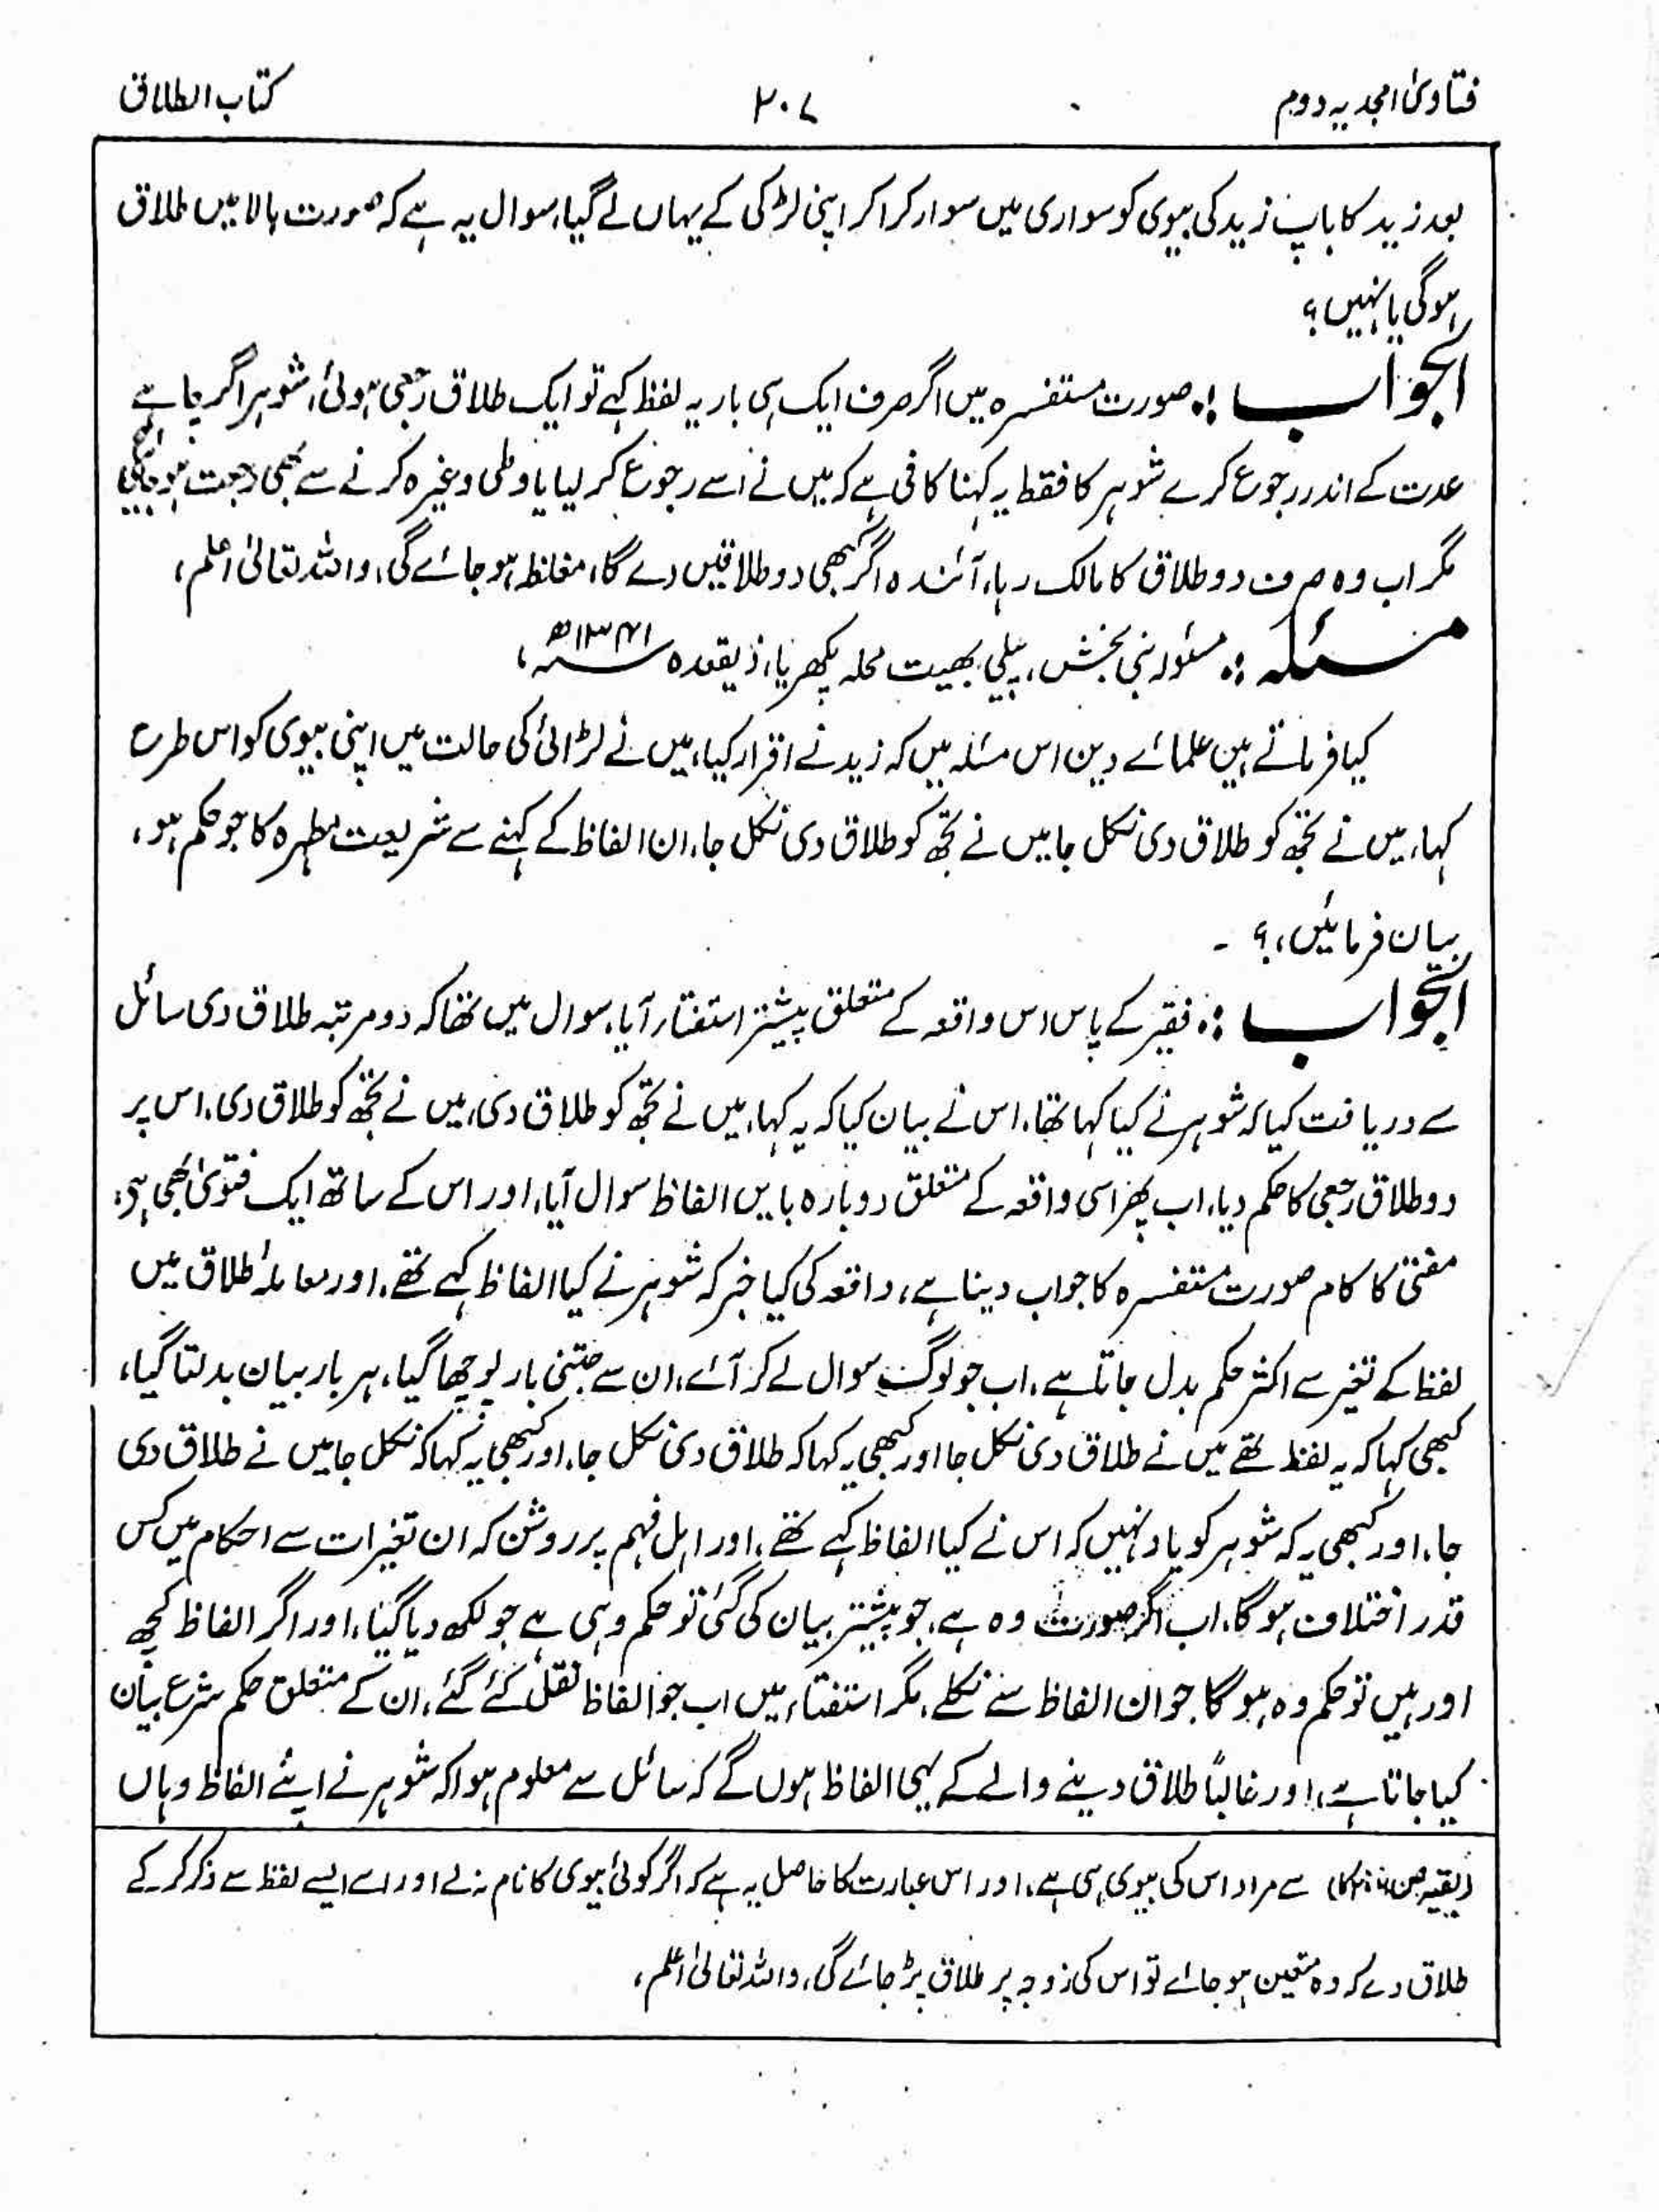 فتاویٰ امجدیہ دوم
۲۰۷
کتاب الطلاق
بعد زید کا باپ زید کی بیوی کو سواری میں سوار کرا کر اپنی لڑکی کے یہاں لے گیا، سوال یہ ہے کہ صورت بالا میں طلاق
ہوگی یا نہیں؟
الجواب :۔ صورت مستفسرہ میں اگر صرف ایک ہی بار یہ لفظ کہے تو ایک طلاق رجعی ہوئی، شوہر اگر چاہے
عدت کے اندر رجوع کرے شوہر کا فقط یہ کہنا کافی ہے کہ میں نے اسے رجوع کر لیا یا وطی وغیرہ کرنے سے بھی رجعت ہو جائیگی
مگر اب وہ صرف دو طلاق کا مالک رہا، آئندہ اگر کبھی دو طلاقیں دے گا، مغلظہ ہو جائے گی، واللہ تعالیٰ اعلم،
مسئلہ :۔ مسئولہ نبی بخش، پیلی بھیت محلہ پکھریا، ذیقعدہ ۱۳۴۱ھ،
کیا فرماتے ہیں علمائے دین اس مسئلہ میں کہ زید نے اقرار کیا، میں نے لڑائی کی حالت میں اپنی بیوی کو اس طرح
کہا، میں نے تجھ کو طلاق دی نکل جا میں نے تجھ کو طلاق دی نکل جا، ان الفاظ کے کہنے سے شریعت مطہرہ کا جو حکم ہو،
بیان فرمائیں،؟ ۔
الجواب :۔ فقیر کے پاس اس واقعہ کے متعلق پیشتر استفتاء آیا، سوال میں تھا کہ دو مرتبہ طلاق دی سائل
سے دریافت کیا کہ شوہر نے کیا کہا تھا، اس نے بیان کیا کہ یہ کہا، میں نے تجھ کو طلاق دی، میں نے تجھ کو طلاق دی، اس پر
دو طلاق رجعی کا حکم دیا، اب پھر اسی واقعہ کے متعلق دوبارہ بایں الفاظ سوال آیا، اور اس کے ساتھ ایک فتویٰ بھی ہے،
مفتی کا کام صورت مستفسرہ کا جواب دینا ہے، واقعہ کی کیا خبر کہ شوہر نے کیا الفاظ کہے تھے، اور معاملۂ طلاق میں
لفظ کے تغیر سے اکثر حکم بدل جاتا ہے، اب جو لوگ سوال لے کر آئے، ان سے جتنی بار پوچھا گیا، ہر بار بیان بدلتا گیا،
کبھی کہا کہ یہ لفظ تھے میں نے طلاق دی نکل جا اور کبھی یہ کہا کہ طلاق دی نکل جا، اور کبھی یہ کہا کہ نکل جا میں نے طلاق دی
جا، اور کبھی یہ کہ شوہر کو یاد نہیں کہ اس نے کیا الفاظ کہے تھے، اور اہل فہم پر روشن کہ ان تغیرات سے احکام میں کس
قدر اختلاف ہوگا، اب اگر صورت وہ ہے، جو پیشتر بیان کی گئی تو حکم وہی ہے جو لکھ دیا گیا، اور اگر الفاظ کچھ
اور ہیں تو حکم وہ ہوگا جو ان الفاظ سے نکلے، مگر استفتاء میں اب جو الفاظ نقل کئے گئے، ان کے متعلق حکم شرع بیان
کیا جاتا ہے، اور غالباً طلاق دینے والے کے یہی الفاظ ہوں گے کہ سائل سے معلوم ہوا کہ شوہر نے اپنے الفاظ وہاں
سے مراد اس کی بیوی ہی ہے، اور اس عبارت کا حاصل یہ ہے کہ اگر کوئی بیوی کا نام نہ لے اور اسے ایسے لفظ سے ذکر کر کے
طلاق دے کہ وہ متعین ہو جائے تو اس کی زوجہ پر طلاق پڑ جائے گی، واللہ تعالیٰ اعلم،